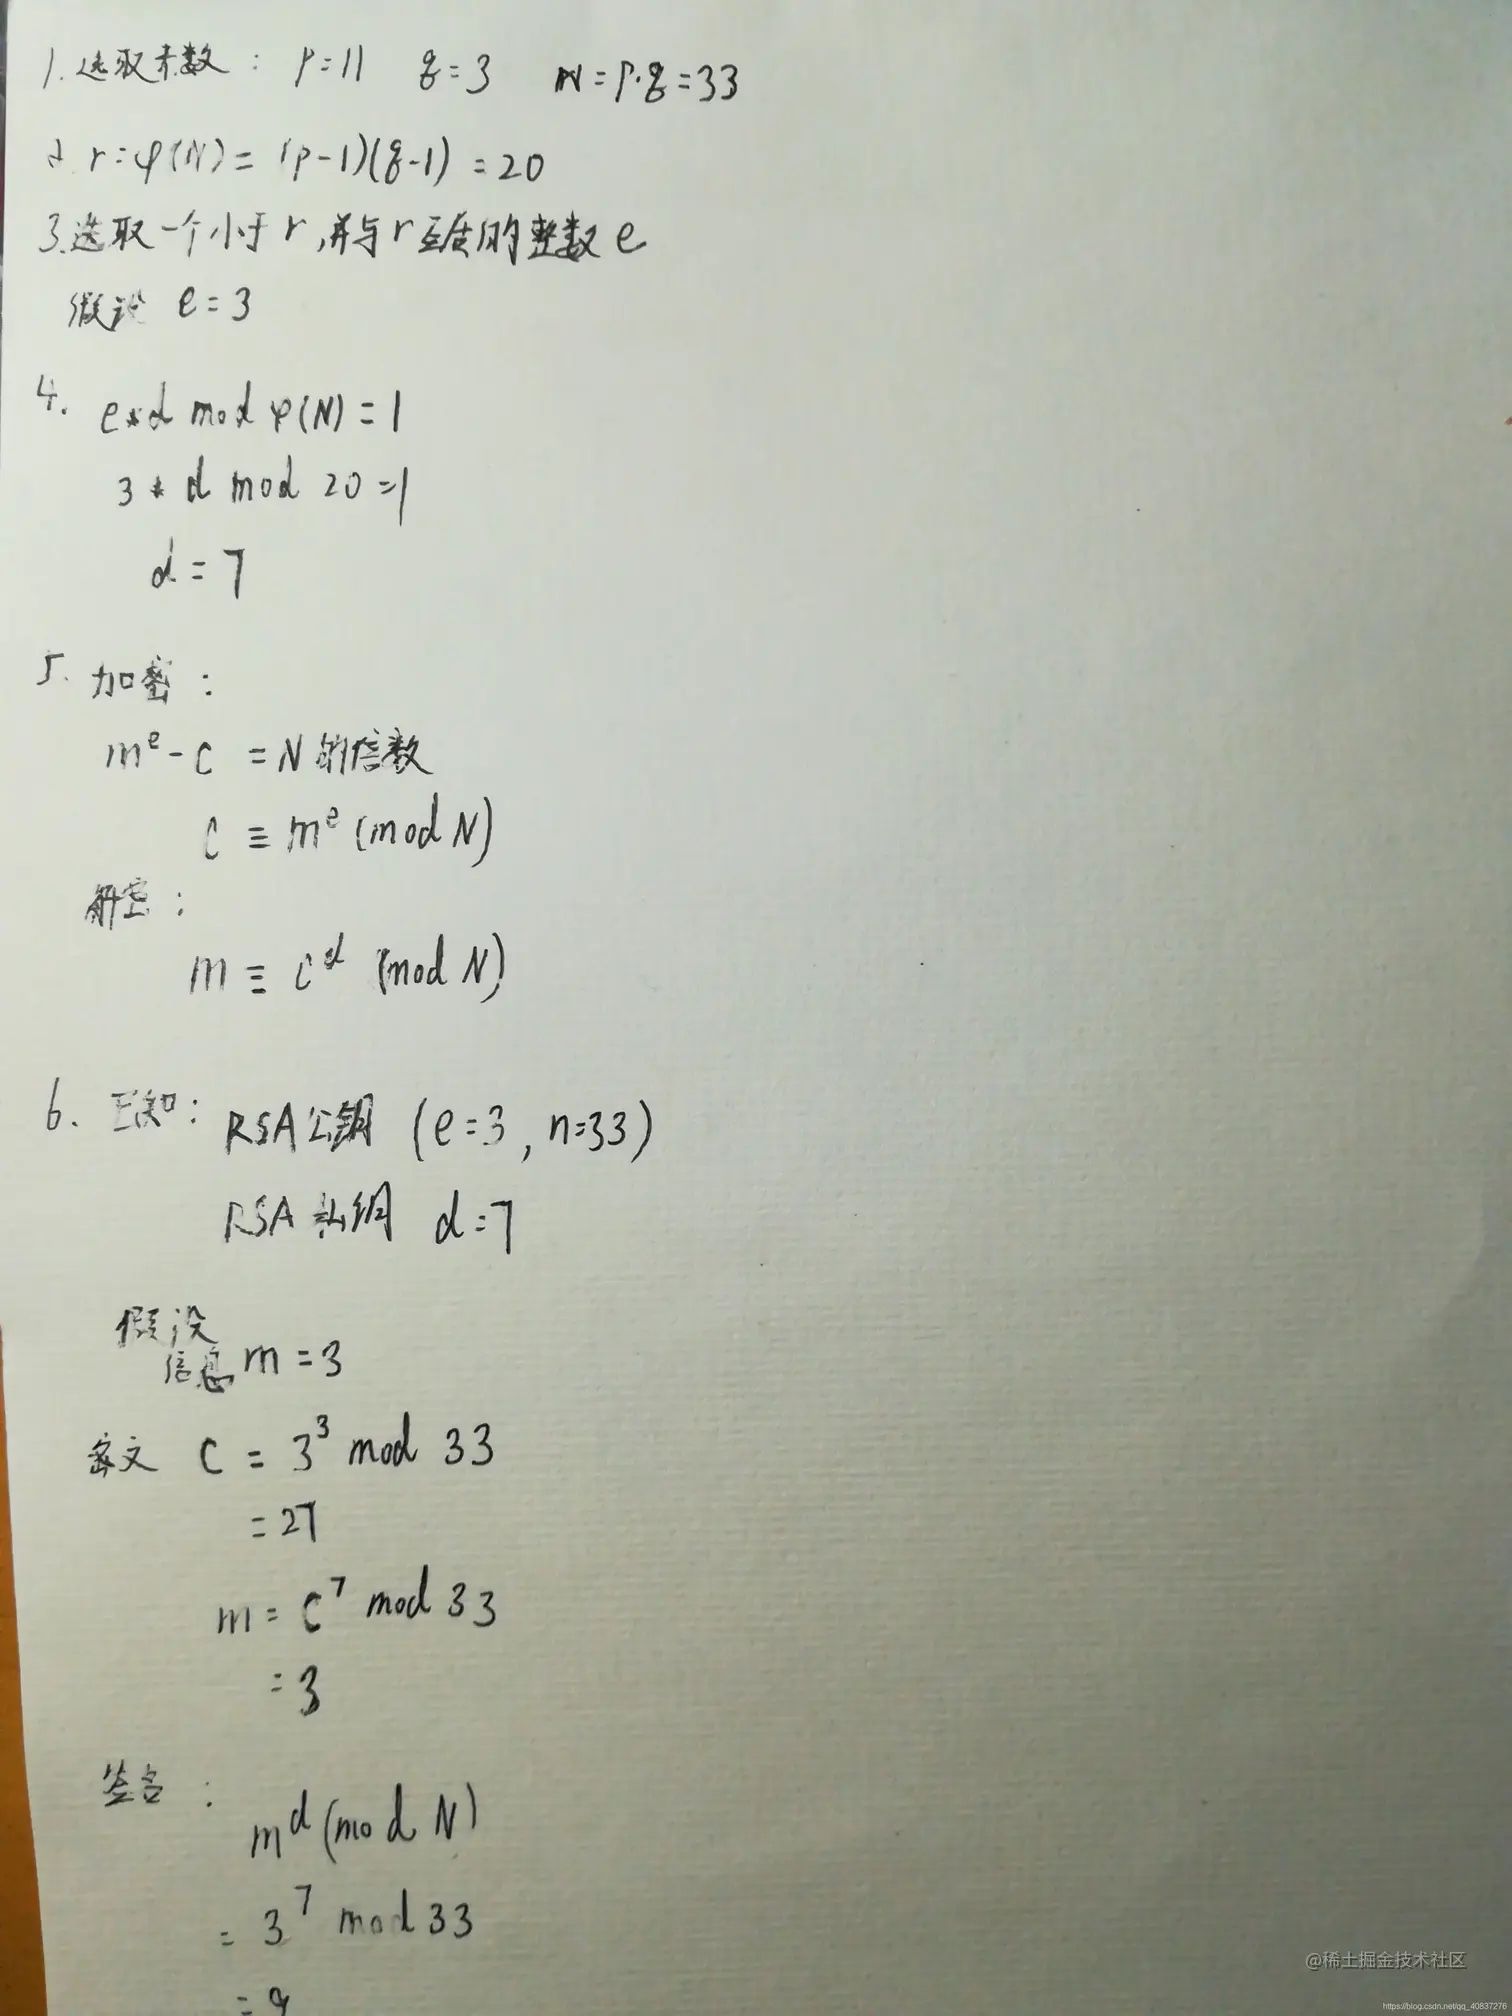 1.选取素数: p=11 q=3 N=p·q=33
2. r=φ(N)=(p-1)(q-1)=20
3.选取一个小于r,并与r互质的整数e
假设 e=3
4. e*d mod φ(N)=1
3*d mod 20=1
d=7
5. 加密:
mᵉ-c =N的倍数
C≡mᵉ(mod N)
解密:
m≡cᵈ (mod N)
6. 已知: RSA公钥 (e=3, n=33)
RSA私钥 d=7
假设
信息m=3
密文 C=3³ mod 33
=27
m=C⁷ mod 33
=3
签名:
mᵈ(mod N)
=3⁷ mod 33
=9
@稀土掘金技术社区
https://blog.csdn.net/qq_40837276